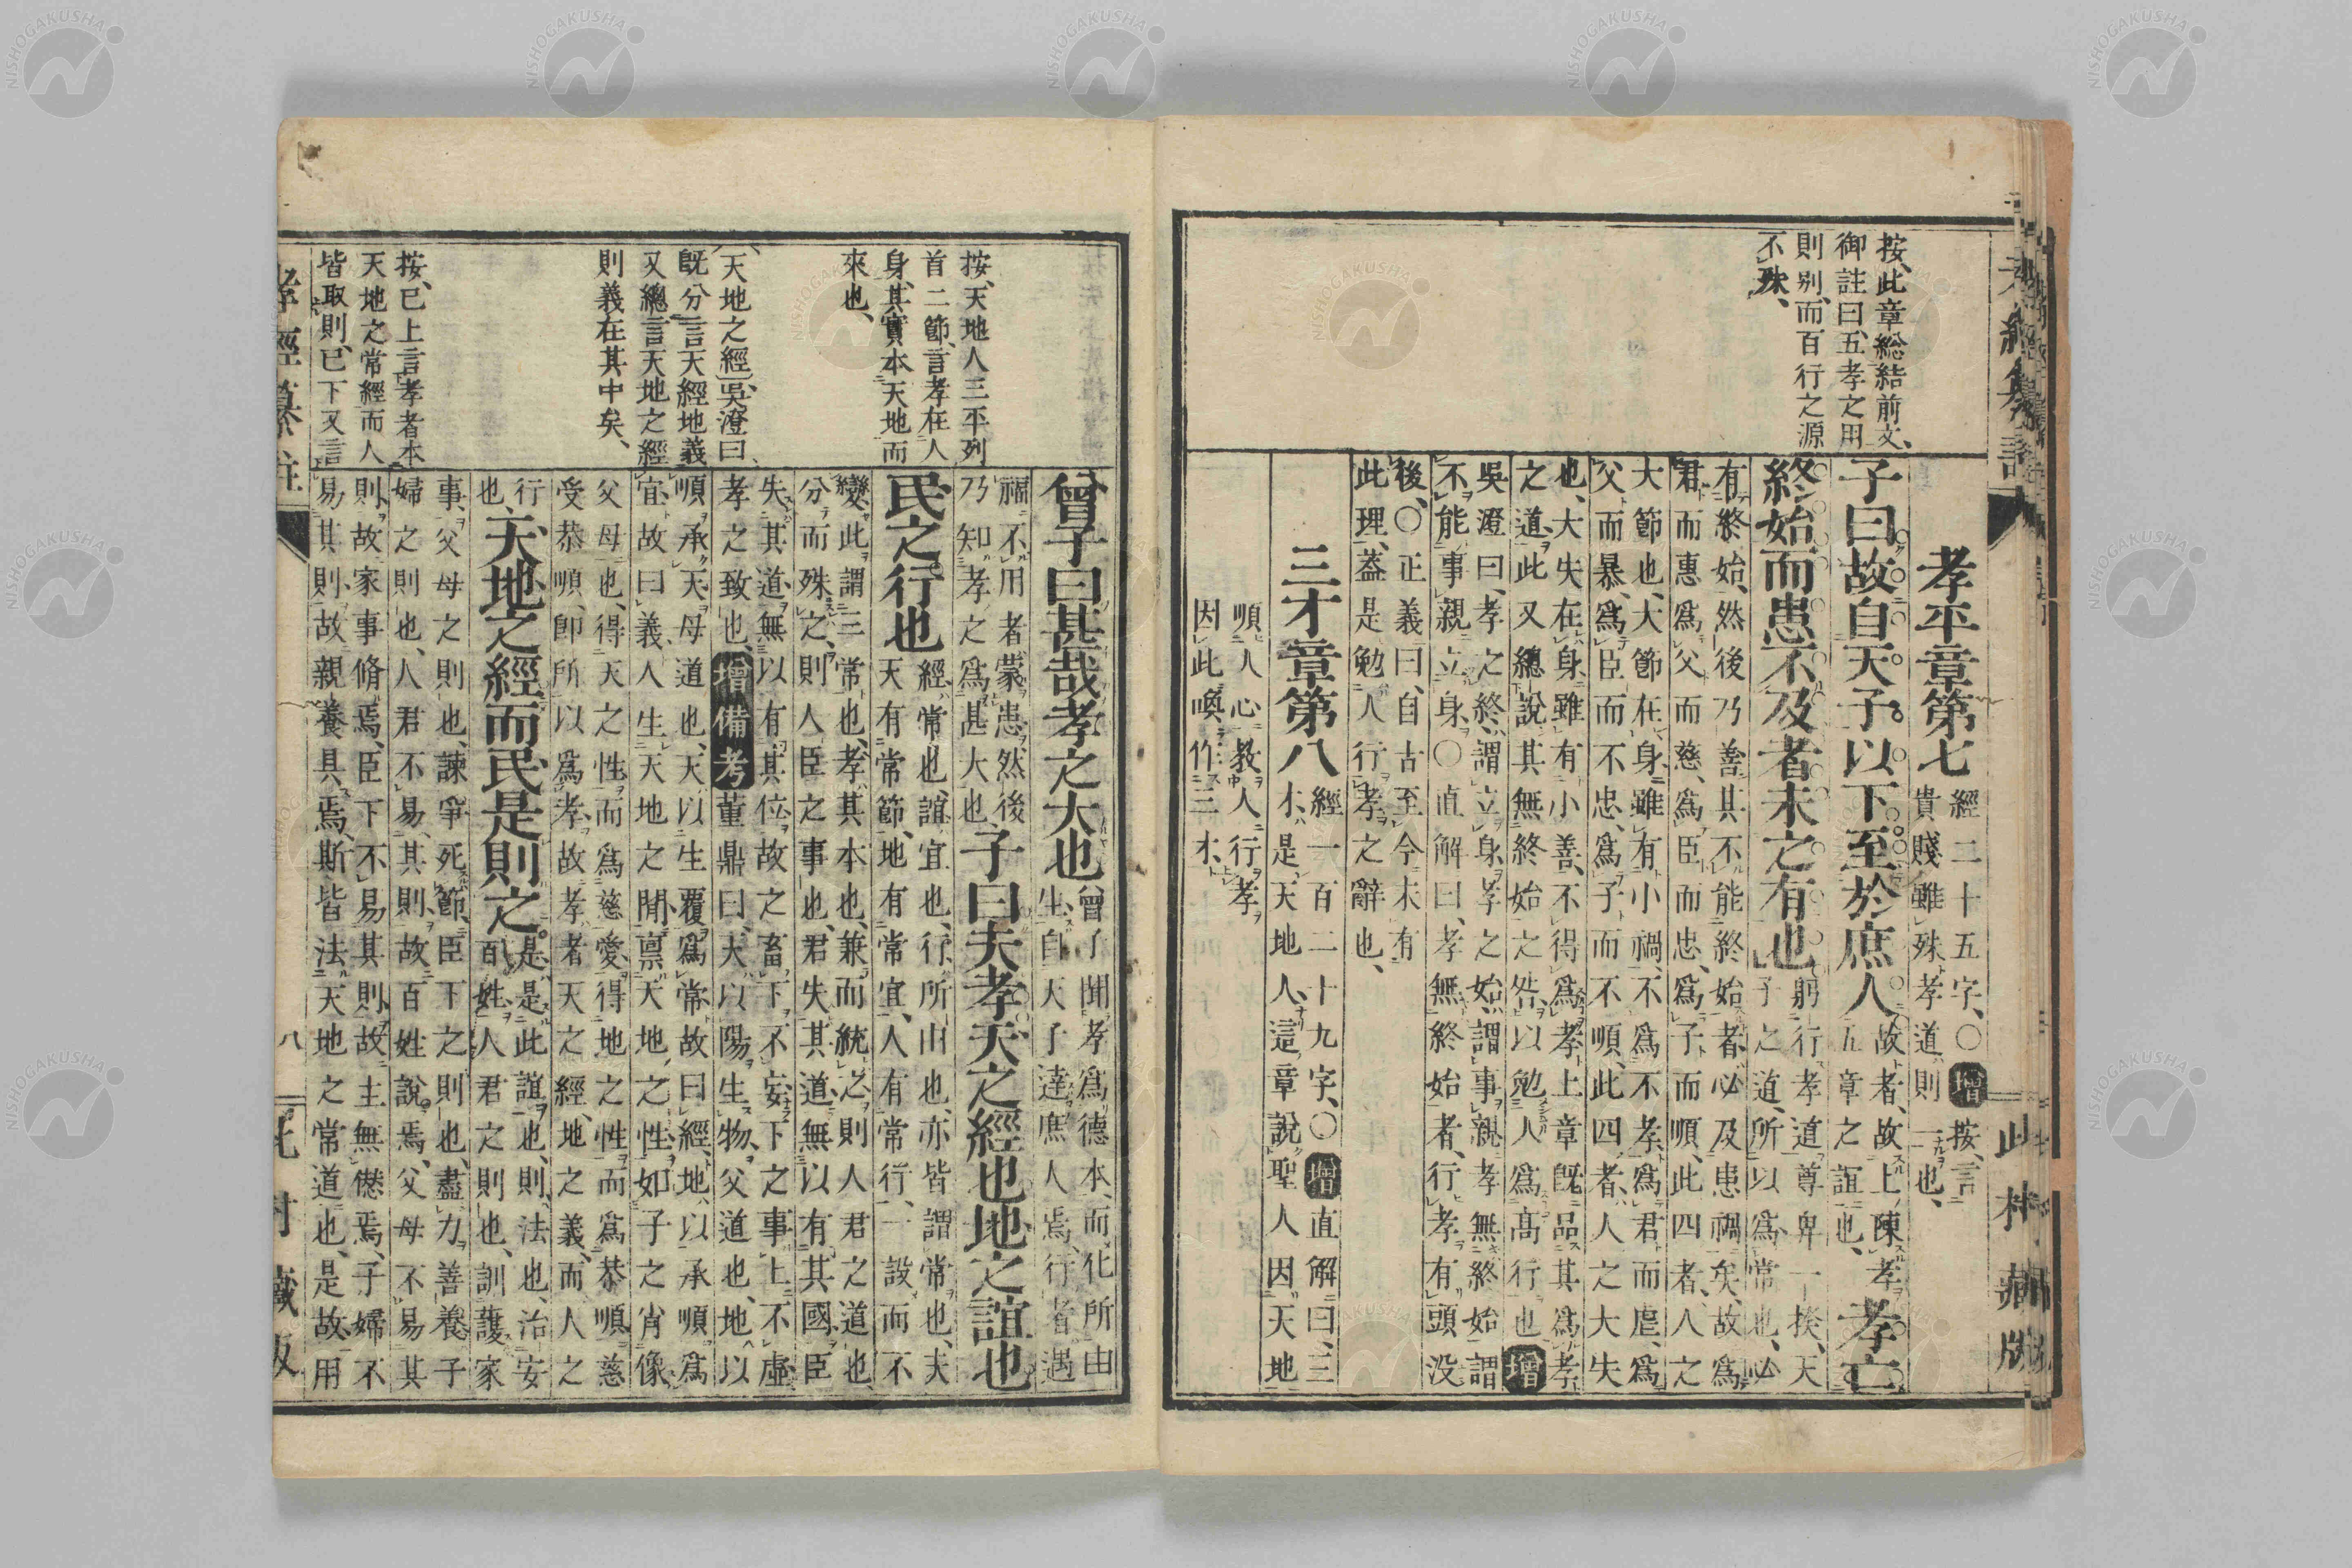 按、此章総結前文、
御註曰、五孝之用
則別、而百行之源
不殊、
孝平章第七
經二十五字、〇增按、言
貴賤雖殊孝道則一也、
子曰故自天子以下至於庶人
故者、故上陳孝
五章之誼也、
孝亡
終始而患不及者未之有也
躬行孝道、尊卑一揆、天
子之道、所以爲常也、必
有終始、然後乃善、其不能終始者、必及患禍矣、故爲
君而惠、爲父而慈、爲臣而忠、爲子而順、此四者、人之
大節也、大節在身、雖有小禍、不爲不孝、爲君而虐、爲
父而暴、爲臣而不忠、爲子而不順、此四者、人之大失
也、大失在身、雖有小善、不得爲孝、上章既品其爲孝
之道、此又總說其無終始之咎、以勉人爲高行也增
吳澄曰、孝之終、謂立身、孝之始、謂事親、孝無終始、謂
不能事親立身、〇直解曰、孝無終始者、行孝有頭没
後、〇正義曰、自古至今未有
此理、蓋是勉人行孝之辭也、
三才章第八
經一百二十九字、〇增直解曰、三
才、是天地人、這章說聖人因天地
順人心教人行孝
因此喚作三才、
此村藏版
按、天地人三平列
首二節、言孝在人
身、其實本天地而
來也、
天地之經、吳澄曰、
既分言天經地義
又總言天地之經
則義在其中矣、
按、已上言孝者本
天地之常經而人
皆取則、已下又言
曾子曰甚哉孝之大也
曾子聞孝爲德本、而化所由
生、自天子達庶人焉、行者遇
福、不用者蒙患、然後
乃知孝之爲甚大也、
子曰夫孝天之經也地之誼也
民之行也
經、常也、誼、宜也、行、所由也、亦皆謂常也、夫
天有常節、地有常宜、人有常行、一設而不
變、此謂三常也、孝其本也、兼而統之、則人君之道也
分而殊之、則人臣之事也、君失其道、無以有其國、臣
失其道、無以有其位、故上之畜下、不妄、下之事上不虛
孝之致也、增備考董鼎曰、天以陽生物、父道也、地以
順承天、母道也、天以生覆爲常、故曰經、地以承順爲
宜、故曰義、人生天地之間、稟天地之性、如子之肖像
父母也、得天之性而爲慈愛、得地之性而爲恭順、慈
愛恭順、卽所以爲孝、故孝者天之經、地之義、而人之
行也、
天地之經而民是則之
是、是此誼也、則、法也、治安
百姓、人君之則也、訓護家
事、父母之則也、諫爭死節、臣下之則也、盡力善養、子
婦之則也、人君不易其則、故百姓說焉、父母不易其
則、故家事脩焉、臣下不易其則、故主無愆焉、子婦不
易其則、故親養具焉、斯皆法天地之常道也、是故用
八